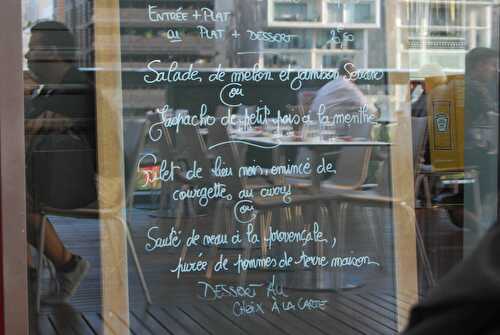 ENTRÉE + PLAT
ou PLAT + DESSERT
Salade de melon et jambon Serrano
ou
Gaspacho de petit pois à la menthe
Filet de lieu noir, émincé de
courgette, au curry
ou
Sauté de veau à la provençale,
purée de pommes de terre maison
DESSERT AU
CHOIX À LA CARTE